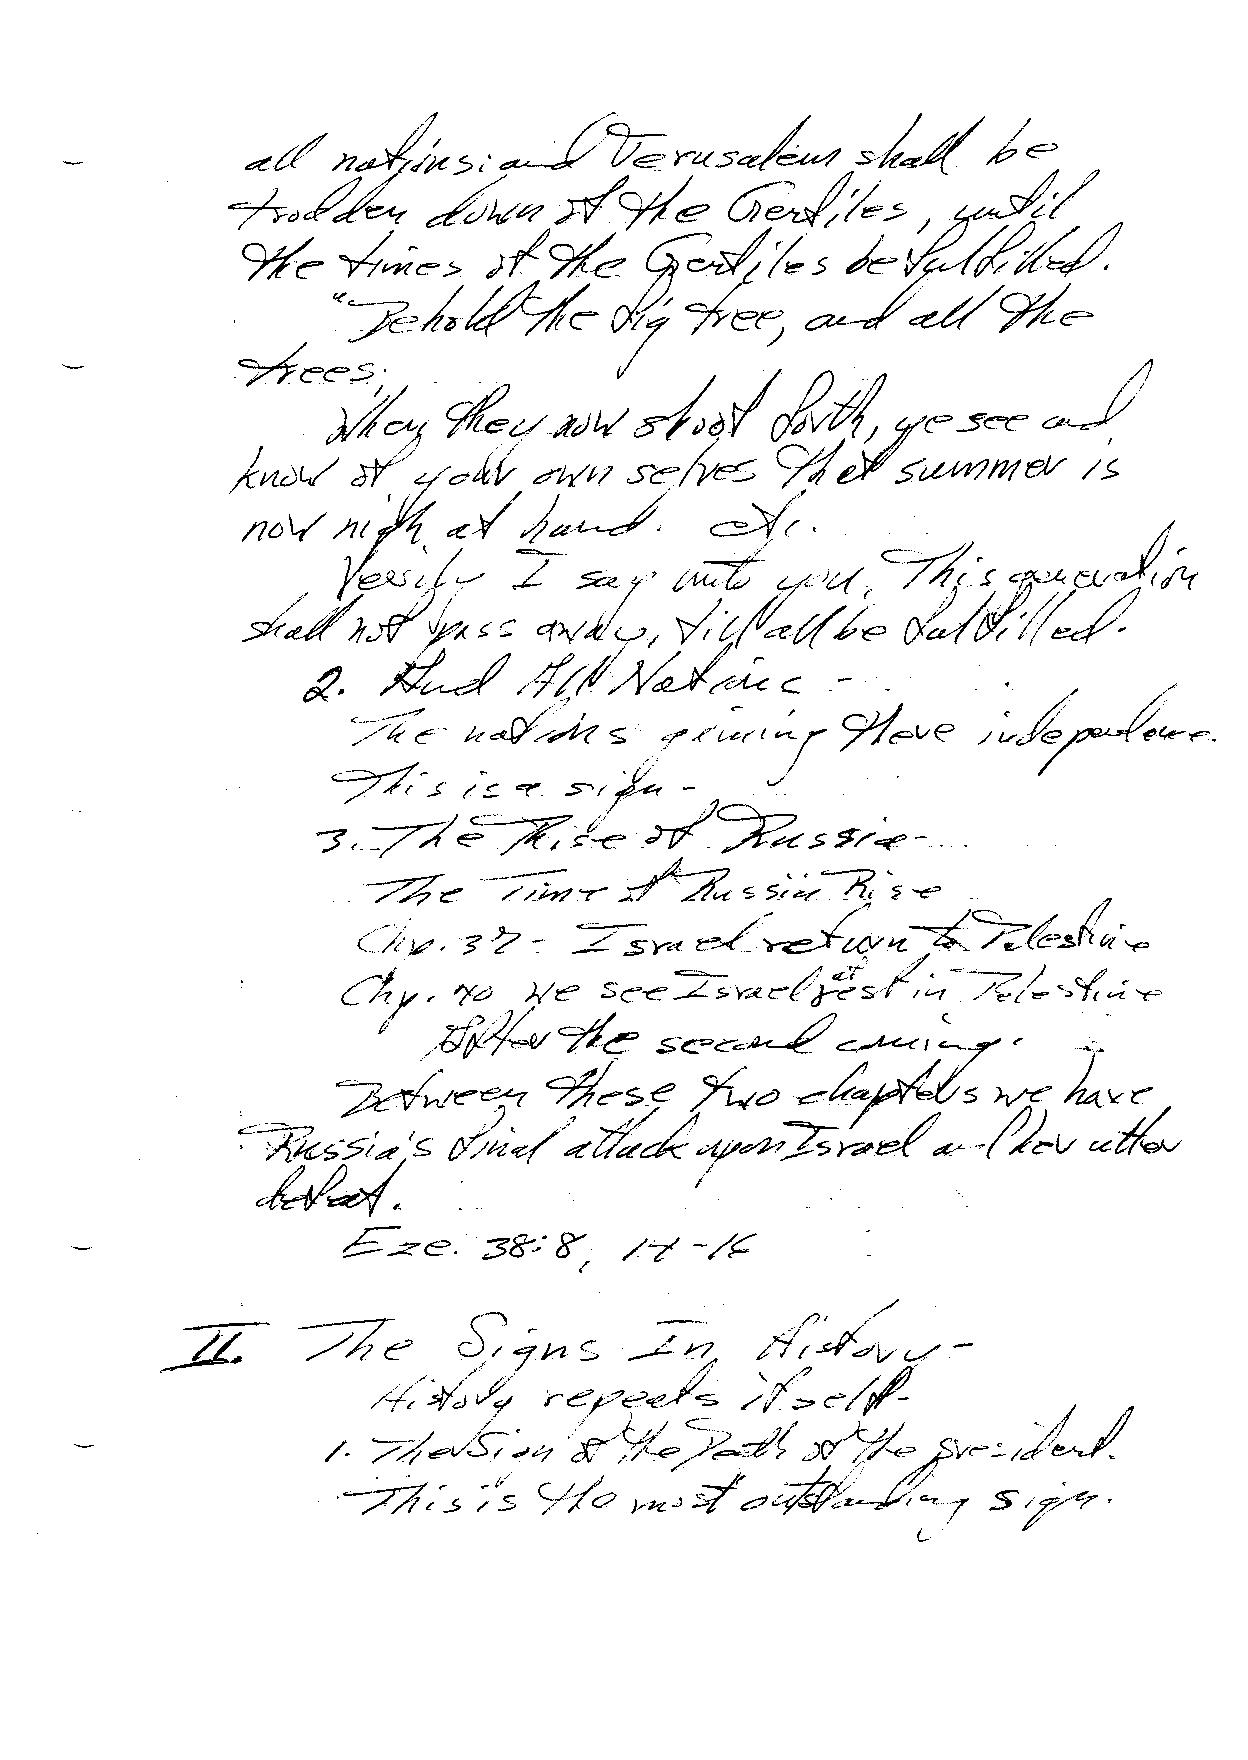 all nations: and Jerusalem shall be
trodden down of the Gentiles, until
the times of the Gentiles be fulfilled.
"Behold the fig tree, and all the
trees;
When they now shoot forth, ye see and
know of your own selves that summer is
now nigh at hand. etc.
Verily I say unto you, This generation
shall not pass away, till all be fulfilled.
2. And All Nations -
The nations gaining there independence.
This is a sign -
3. The Rise of Russia -
The Time of Russia Rise
Chp. 37 - Israel return to Palestine
Chp. 40 we see Israel at rest in Palestine
After the second coming.
Between these two chapters we have
Russia's final attack upon Israel and her utter
defeat.
Eze. 38:8, 14-16
II. The Signs In History -
History repeats itself -
1. The Sign of the Death of the president.
This is the most outstanding sign.